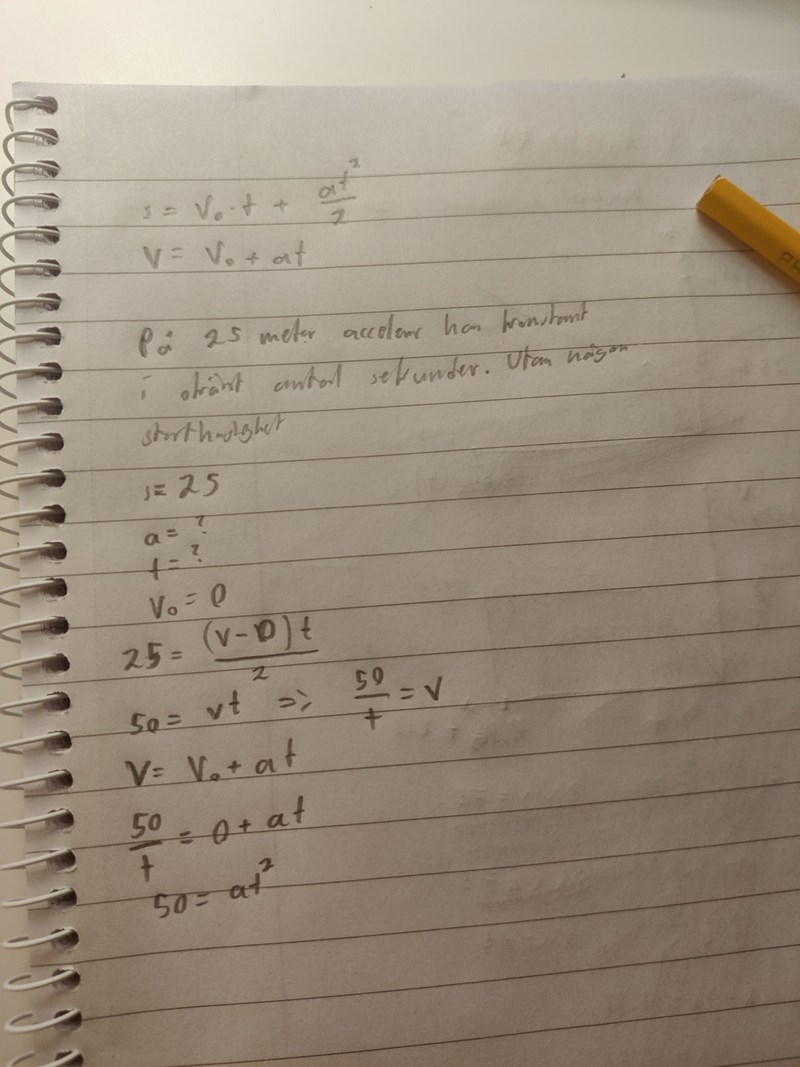 s = V₀·t + at²/2
V = V₀ + at
På 25 meter han konstant
i okänt antal sekunder. Utan någon
starthastighet
s = 25
a = ?
t = ?
V₀ = 0
25 = (v-0)t/2
50 = vt => 50/t = V
V = V₀ + at
50/t = 0 + at
50 = at²